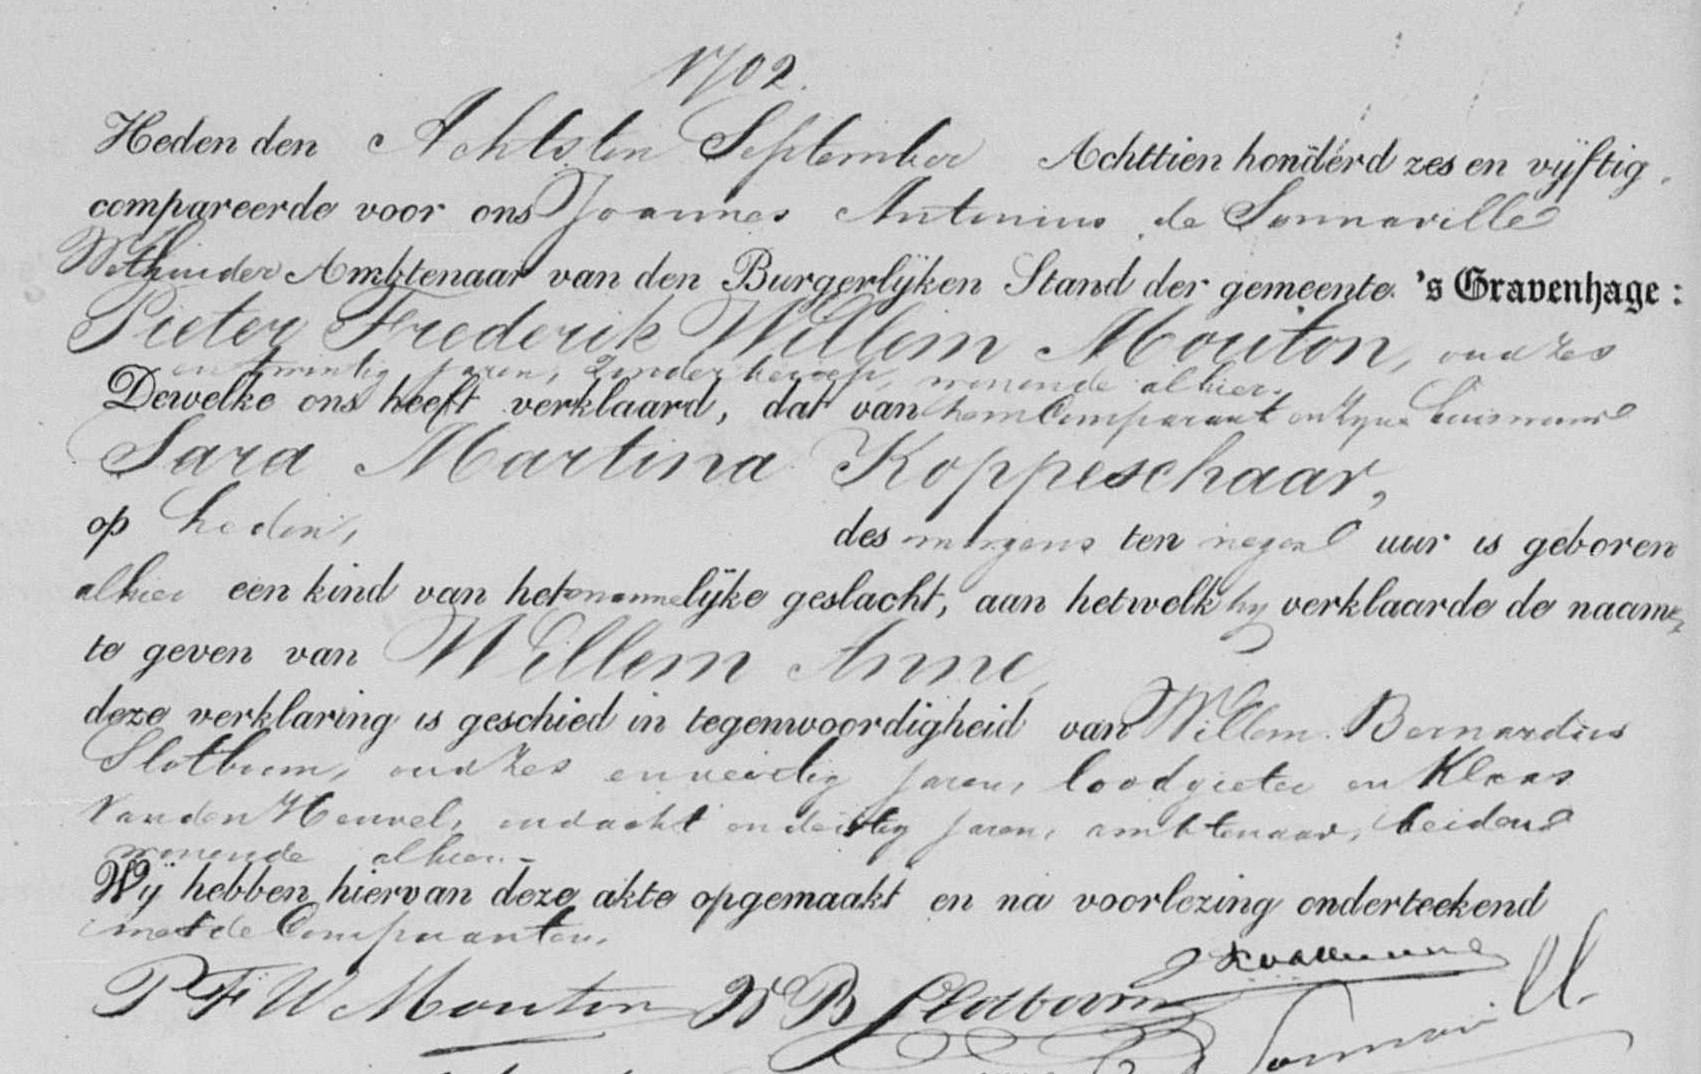 1702.
Heden den Achtsten September Achttien honderd zes en vijftig.
compareerde voor ons Joannes Antonius de Sonnaville
Wethouder Ambtenaar van den Burgerlijken Stand der gemeente 's Gravenhage:
Pieter Frederik Willem Mouton, oud zes
en twintig jaren, zonder beroep, wonende alhier.
Dewelke ons heeft verklaard, dat van hem Comparant en zijne huisvrouw
Sara Martina Koppeschaar,
op heden, des morgens ten negen uur is geboren
alhier een kind van het mannelijke geslacht, aan hetwelk hij verklaarde de naamen
te geven van Willem Anne,
deze verklaring is geschied in tegenwoordigheid van Willem Bernardus
Slotboom, oud zes en veertig jaren, loodgieter en Klaas
van den Heuvel, oud acht en dertig jaren, ambtenaar, beiden
wonende alhier.-
Wij hebben hiervan deze akte opgemaakt en na voorlezing onderteekend
met de Comparanten.
P F W Mouton W B Slotboom
Sonnavill